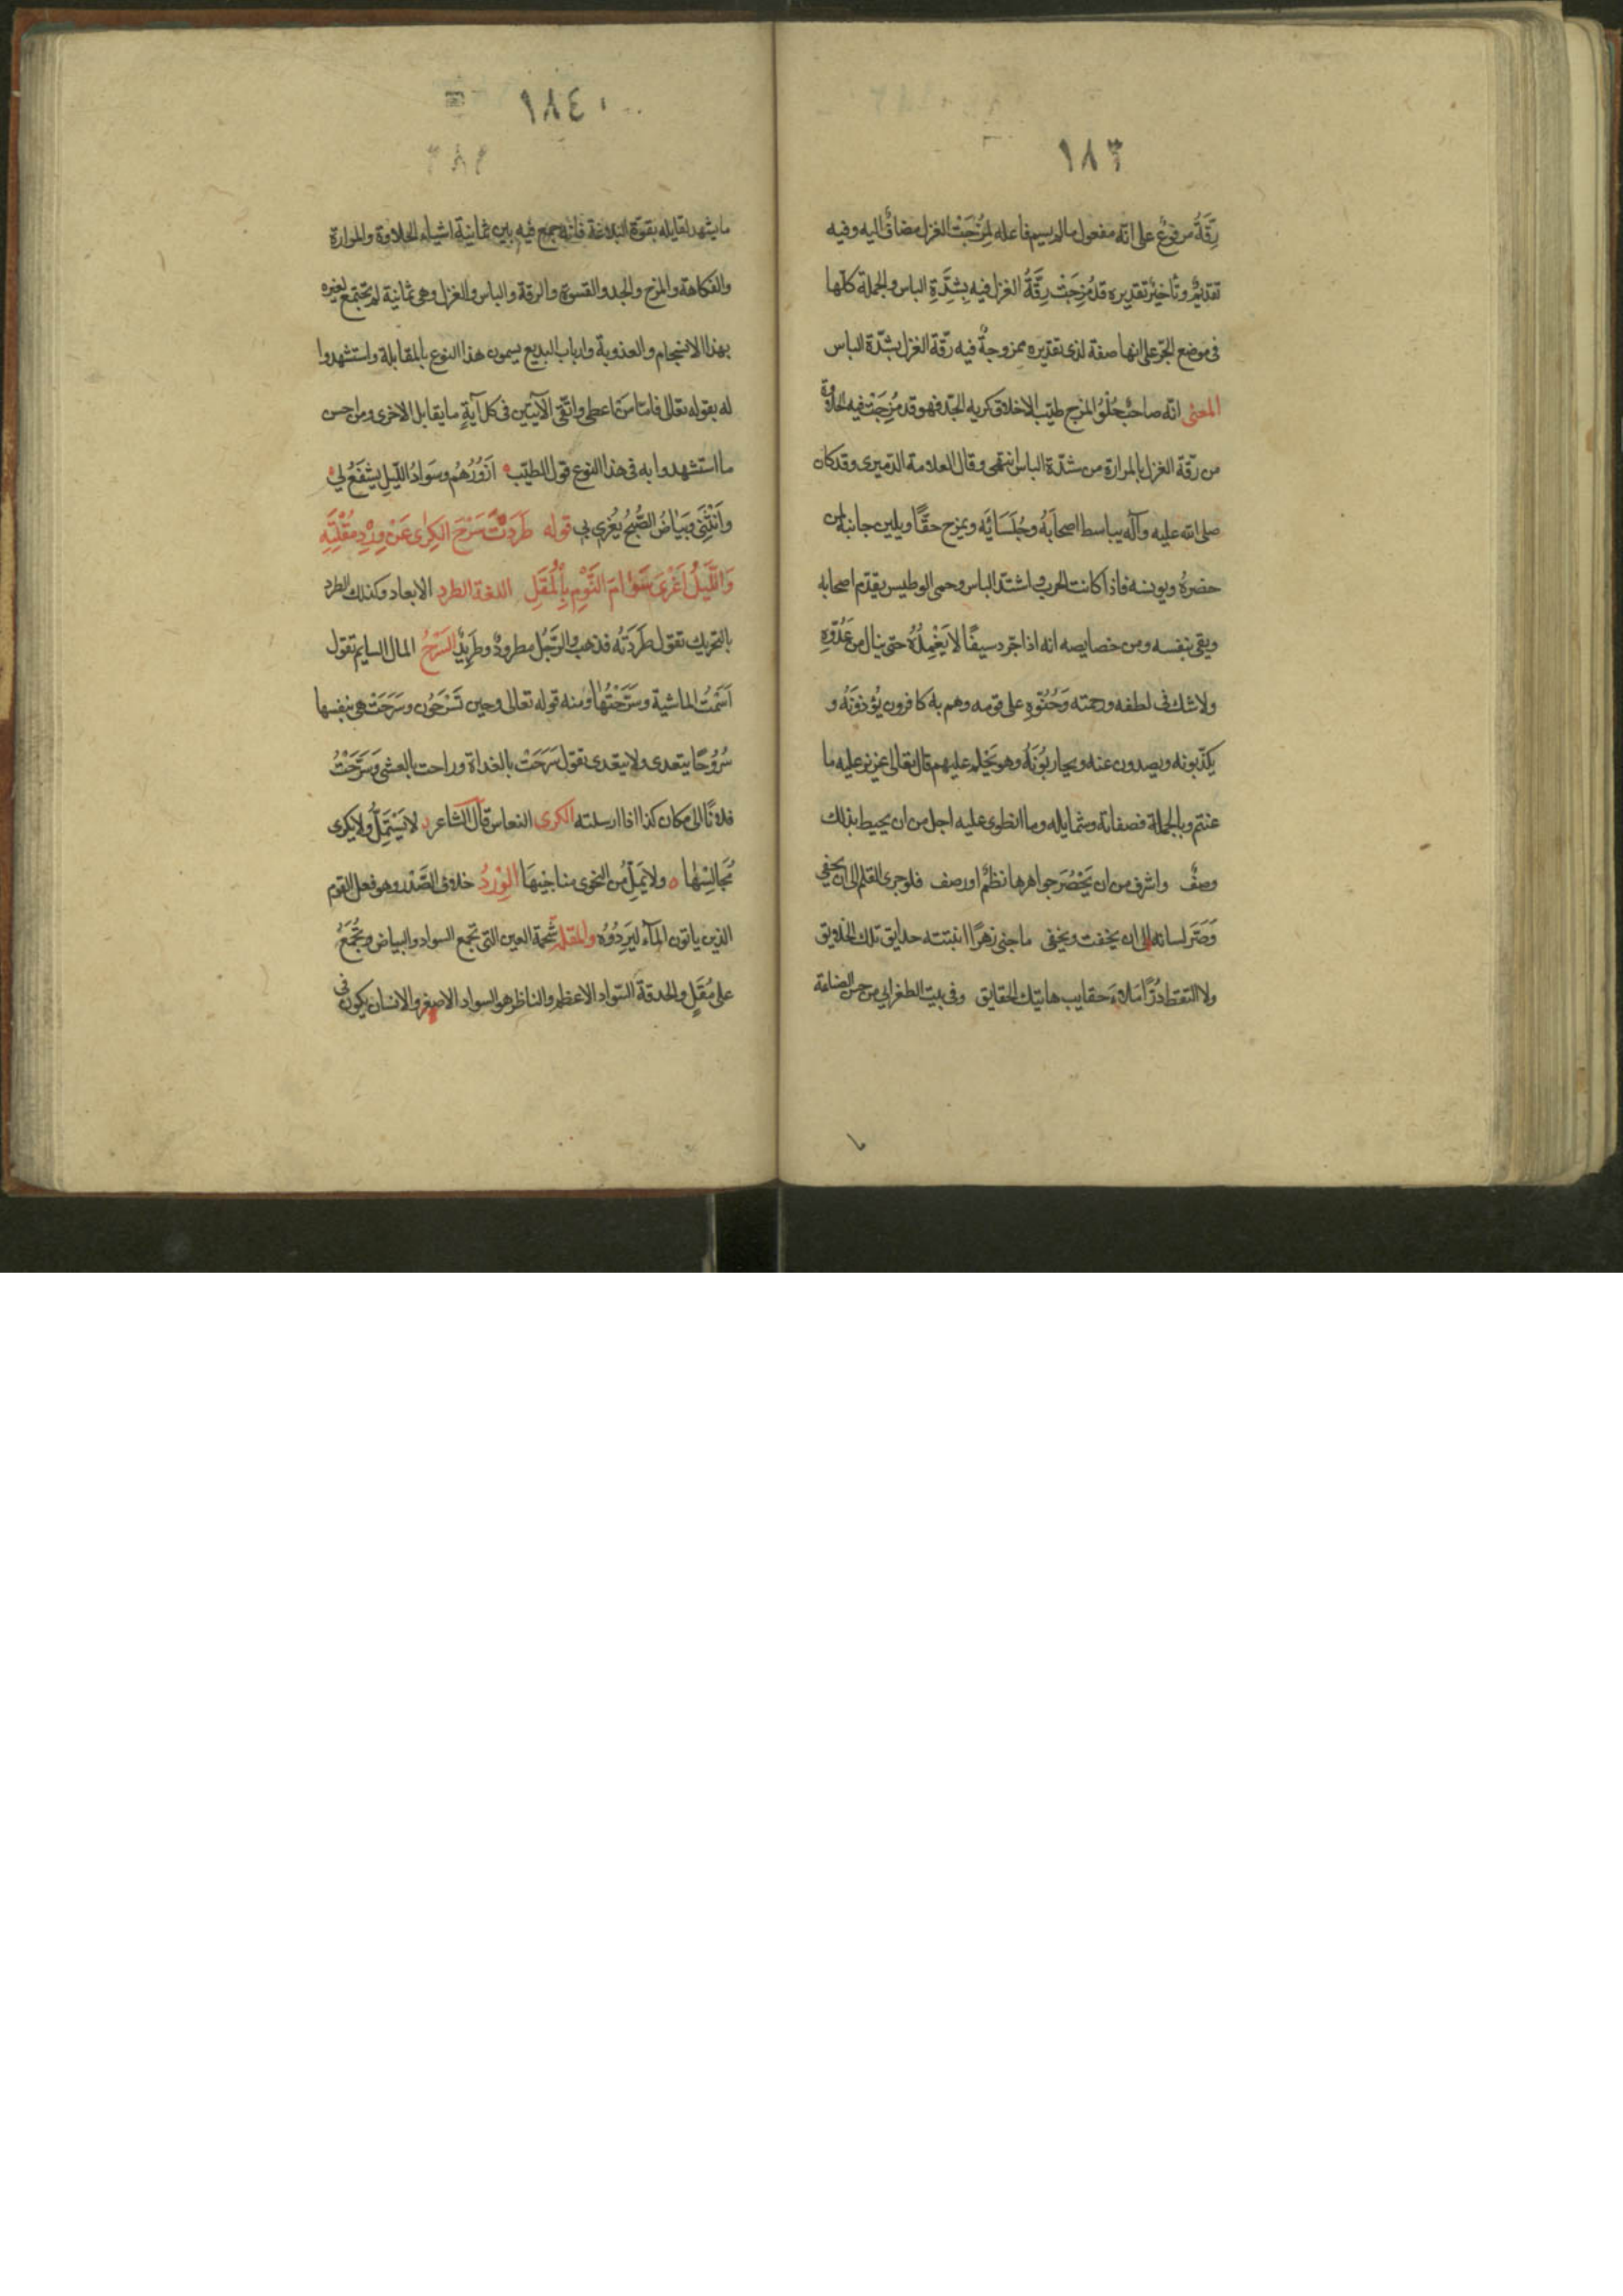 ١٨٣
رِقَّةُ مرفوع على انّه مفعول مالم يسم فاعله لِمُزِجَتْ الغزل مضافٌ اليه وفيه
تقديمٌ وتأخيرٌ تقديره قد مُزِجَتْ رِقَّةُ الغزل فيه بِشِدَّةِ الباس والجملة كلّها
فى موضع الجرّ على انها صفة لذى تقديره ممزوجةٌ فيه رقّة الغزل بشدّة الباس
المعنى انّه صاحب حُلْوُ المزح طيّب الاخلاق كريه الجدّ فهو قد مُزِجَتْ فيه الحلاوة
من رقّة الغزل بالمرارة من شدّة الباس انتهى وقال العلامة الدّميرى وقد كان
صلى الله عليه وآله يباسط اصحابَهُ وجُلَسَائَه ويمزح حقًّا ويلين جانبه لمن
حضرهُ ويونسه فاذا كانت الحرب واشتدّ الباس وحمى الوطيس يقدّم اصحابه
ويقى بنفسه ومن خصايصه انه اذا جرّد سيفًا لا يَغْمِدُهُ حتى ينال من عَدُوِّهِ
ولا شك فى لطفه ورحمته وَحُنُوِّهِ على قومه وهم به كافرون يُؤذونَهُ و
يكذّبونه ويصدون عنه ويحاربُونَهُ وهو يَحْلم عليهم قال تعالى عزيز عليه ما
عنتم وبالجملة فصفاته وشمايله وما انطوى عليه اجل من ان يحيط بذلك
وصفٌ واشرف من ان يَحْصُرَ جواهرها نظمٌ او رصف فلو جرى القلم الى ان يحفى
وَصَرَّ لسانه الى ان يخفت ويخفى ما جنى زهرًا انبتته حدايق تلك الخلايق
ولا التقط دُرًّا مَلاءَ حقايب هاتيك الحقايق وفى بيت الطغرايى من حسن الصناعة
١٨٤
ما يشهد لقايله بقوّة البلاغة فانّه جمع فيه بين ثمانية اشياء الحلاوة والمرارة
والفكاهة والمزح والجد والقسوة والرقة والباس والغزل وهى ثمانية لم تجتمع لغيره
بهذا الانسجام والعذوبة وارباب البديع يسمون هذا النوع بالمقابلة واستشهدوا
له بقوله تعالى فامّا من اعطى واتّقى الآيتين فى كل آيةٍ ما يقابل الاخرى ومن احسن
ما استشهدوا به فى هذا النوع قول الطيّب اَزُوْرُهُم وسَوادُ اللّيلِ يشْفَعُ لي
وَاَنْثَنِى وَبَيَاضُ الصُّبحِ يُغْرِى بي قوله طَرَدْتُ سَرْحَ الكِرٰى عَنْ وِرْدِ مُقْلَتِهِ
وَاللَّيْلُ اَغْرىٰ سَوٰامَ النَّوْمِ بِالْمُقَلِ اللغة الطرد الابعاد وكذلك الطرد
بالتحريك تقول طَرَدَتُه فذهب والرَّجُل مطرودٌ وطَرِيدٌ السَرْحُ المال السايم تقول
اَسَمْتُ الماشية وسَرَّحْتُهٰا ومنه قوله تعالى وحين تَسْرَحُون وسَرَحَتْ هى بنفسها
سُرُوحًا يتعدى ولا يتعدى تقول سَرَحَتْ بالغداة وراحت بالعشى وَسَرَّحْتُ
فلانًا الى مكان كذا اذا ارسلته الكرى النعاس قال الشاعر لا يَسْتَمِلُّ ولا يكرى
مُجَالِسُهٰا ه ولا يَمَلُّ من النجوى مناجيهَا الوِرْدُ خلاف الصَّدْر وهو فعل القوم
الذين ياتون المآء لِيَرِدُوْهُ والمقلة شَحْمة العين التى تجمع السواد والبياض وتُجْمَعُ
على مُقَلٍ والحدقة السّواد الاعظم والناظر هو السواد الاصغر والانسان يكون فى